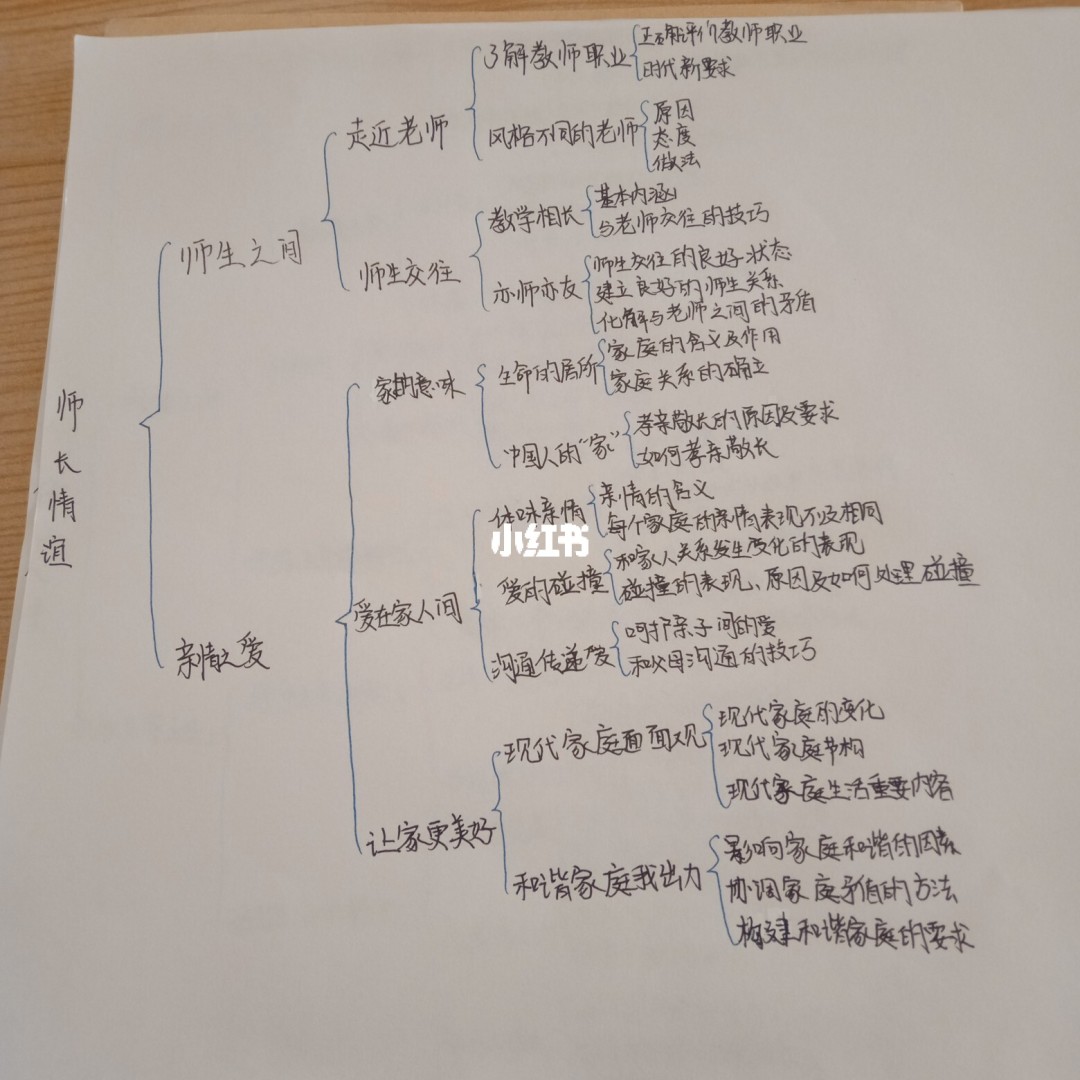 师长情谊
师生之间
走近老师
了解教师职业
正确评价教师职业
时代新要求
风格不同的老师
原因
态度
做法
师生交往
教学相长
基本内涵
与老师交往的技巧
亦师亦友
师生交往的良好状态
建立良好的师生关系
化解与老师之间的矛盾
亲情之爱
家的意味
生命的居所
家庭的含义及作用
家庭关系的确立
中国人的“家”
孝亲敬长的原因及要求
如何孝亲敬长
爱在家人间
体味亲情
亲情的含义
每个家庭的亲情表现不及相同
爱的碰撞
和家人关系发生变化的表现
碰撞的表现、原因及如何处理碰撞
沟通传递爱
呵护亲子间的爱
和父母沟通的技巧
让家更美好
现代家庭面面观
现代家庭的变化
现代家庭节构
现代家庭生活重要内容
和谐家庭我出力
影响家庭和谐的因素
协调家庭矛盾的方法
构建和谐家庭的要求
小红书